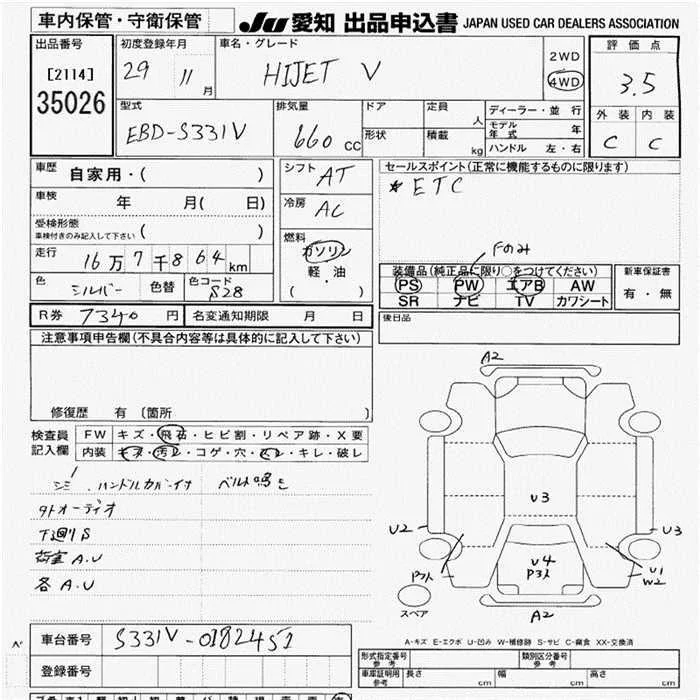 車内保管・守衛保管
JU 愛知 出品申込書 JAPAN USED CAR DEALERS ASSOCIATION
出品番号
[2114]
35026
初度登録年月
29 11月
車名・グレード
HIJET V
2WD
4WD
評価点
3.5
外装 内装
C C
型式
EBD-S331V
排気量
660 cc
ドア
形状
定員 人
積載 kg
ディーラー・並行
モデル年式 年
ハンドル 左・右
車歴
自家用・( )
車検
年 月( 日)
受検形態
車検付きのみ記入して下さい ( )
走行
16万7千864km
色 シルバー 色替
色コード S28
シフト AT
冷房 AC
燃料
ガソリン
軽・油
( )
セールスポイント(正常に機能するものに限ります)
* ETC
Fのみ
装備品(純正品に限り○をつけてください)
PS PW エアB AW
SR ナビ TV カワシート
新車保証書
有・無
R券 7340 円
名変通知期限 月 日
後日品
注意事項申告欄(不具合内容等は具体的に記入して下さい)
修復歴 有 〔箇所 〕
検査員
記入欄
FW キズ・飛石・ヒビ割・リペア跡・X要
内装 キズ・汚レ・コゲ・穴・スレ・キレ・破レ
シミ ハンドルカバー付 ベルト鳴き
外オーディオ
下廻りS
荷室 A.U
各 A.U
A2
U3
U2
U3
U4
P3人
P3人
U1
W2
A2
スペア
A-キズ E-エクボ U-凹み W-補修跡 S-サビ C-腐食 XX-交換済
車台番号 S331V-0182451
登録番号
形式指定番号
参考
類別区分番号
参考
車庫証明用
参考
長さ cm 幅 cm 高さ cm